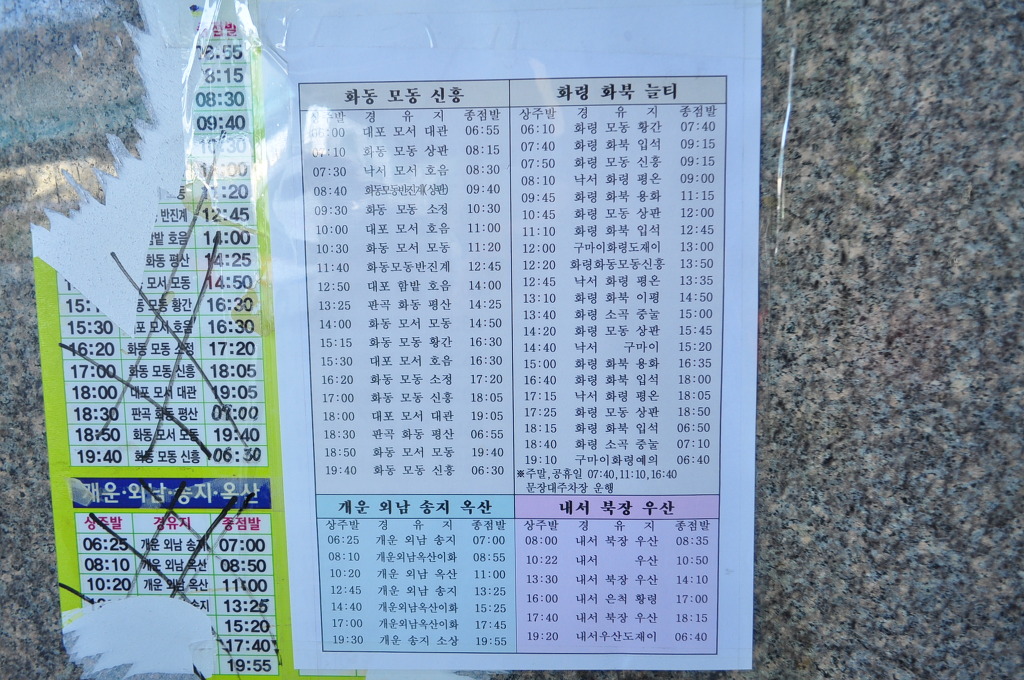 종점발
8:15
08:30
09:40
11:20
반진계 12:45
함밭 호음 14:00
화동 평산 14:25
모서 모동 14:50
모동 황간 16:30
15:30 대포 모서 호음 16:30
16:20 화동 모동 소정 17:20
17:00 화동 모동 신흥 18:05
18:00 대포 모서 대관 19:05
18:30 판곡 화동 평산 07:00
18:50 화동 모서 모동 19:40
19:40 화동 모동 신흥 06:30
개운·외남·송지·옥산
상주발 경유지 종점발
06:25 개운 외남 송지 07:00
08:10 개운 외남 옥산 08:50
10:20 개운 외남 옥산 11:00
송지 13:25
15:20
17:40
19:55
화동 모동 신흥
상주발 경 유 지 종점발
06:00 대포 모서 대관 06:55
07:10 화동 모동 상판 08:15
07:30 낙서 모서 호음 08:30
08:40 화동모동반진계(상판) 09:40
09:30 화동 모동 소정 10:30
10:00 대포 모서 호음 11:00
10:30 화동 모서 모동 11:20
11:40 화동모동반진계 12:45
12:50 대포 함밭 호음 14:00
13:25 판곡 화동 평산 14:25
14:00 화동 모서 모동 14:50
15:15 화동 모동 황간 16:30
15:30 대포 모서 호음 16:30
16:20 화동 모동 소정 17:20
17:00 화동 모동 신흥 18:05
18:00 대포 모서 대관 19:05
18:30 판곡 화동 평산 06:55
18:50 화동 모서 모동 19:40
19:40 화동 모동 신흥 06:30
화령 화북 늘티
상주발 경 유 지 종점발
06:10 화령 모동 황간 07:40
07:40 화령 화북 입석 09:15
07:50 화령 모동 신흥 09:15
08:10 낙서 화령 평온 09:00
09:45 화령 화북 용화 11:15
10:45 화령 모동 상판 12:00
11:10 화령 화북 입석 12:45
12:00 구마이화령도재이 13:00
12:20 화령화동모동신흥 13:50
12:45 낙서 화령 평온 13:35
13:10 화령 화북 이평 14:50
13:40 화령 소곡 중눌 15:00
14:20 화령 모동 상판 15:45
14:40 낙서 구마이 15:20
15:00 화령 화북 용화 16:35
16:40 화령 화북 입석 18:00
17:15 낙서 화령 평온 18:05
17:25 화령 모동 상판 18:50
18:15 화령 화북 입석 06:50
18:40 화령 소곡 중눌 07:10
19:10 구마이화령예의 06:40
※주말,공휴일 07:40,11:10,16:40
문장대주차장 운행
개운 외남 송지 옥산
상주발 경 유 지 종점발
06:25 개운 외남 송지 07:00
08:10 개운외남옥산이화 08:55
10:20 개운 외남 옥산 11:00
12:45 개운 외남 송지 13:25
14:40 개운외남옥산이화 15:25
17:00 개운외남옥산이화 17:45
19:30 개운 송지 소상 19:55
내서 북장 우산
상주발 경 유 지 종점발
08:00 내서 북장 우산 08:35
10:22 내서 우산 10:50
13:30 내서 북장 우산 14:10
16:00 내서 은척 황령 17:00
17:40 내서 북장 우산 18:15
19:20 내서우산도재이 06:40